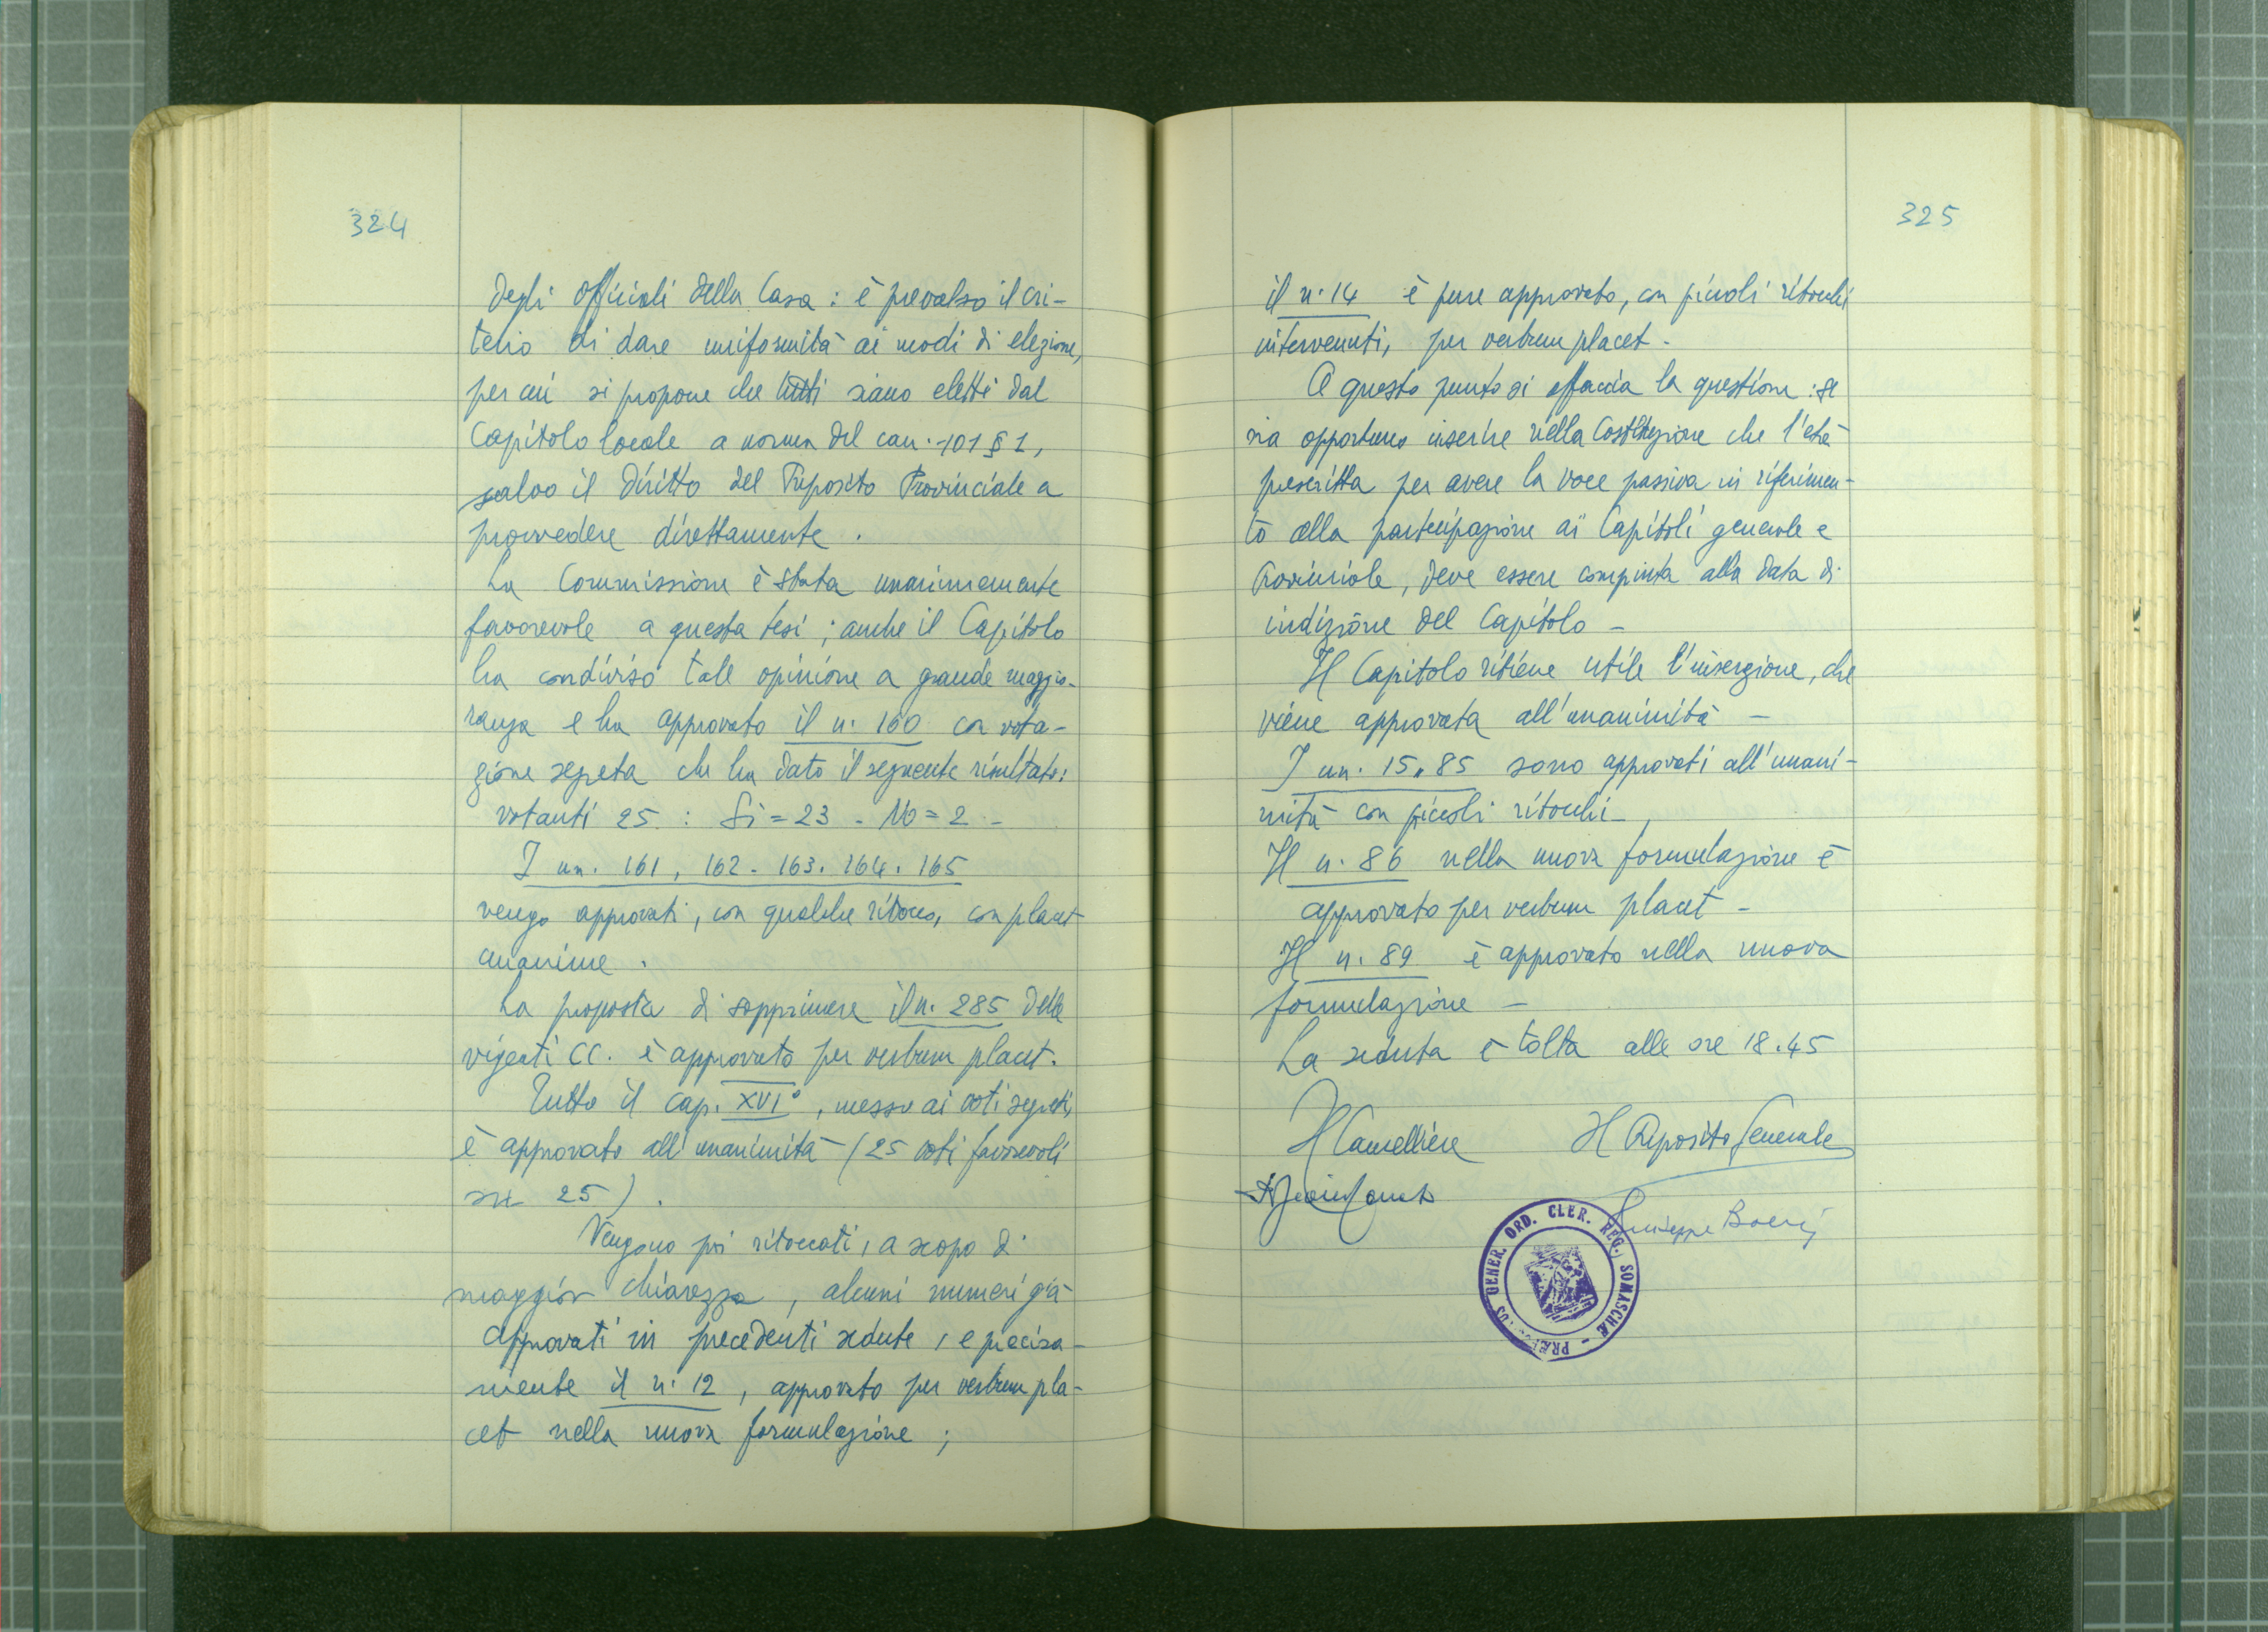 324
degli officiali della Casa: è prevalso il cri-
terio di dare uniformità ai modi di elezione,
per cui si propone che tutti siano eletti dal
Capitolo locale a norma del can. 101 § 1,
salvo il diritto del Preposito Provinciale a
provvedere direttamente.
La Commissione è stata unanimemente
favorevole a questa tesi; anche il Capitolo
ha condiviso tale opinione a grande maggio-
ranza e ha approvato il n. 160 con vota-
zione segreta che ha dato il seguente risultato:
votanti 25: Sì = 23 - No = 2 -
I nn. 161, 162 - 163. 164. 165
vengo approvati, con qualche ritocco, con placet
unanime.
La proposta di sopprimere il n. 285 delle
vigenti CC. è approvata per verbum placet.
Tutto il cap. XVI°, messo ai voti segreti,
è approvato all'unanimità - (25 voti favorevoli
su 25).
Vengono poi ritoccati, a scopo di
maggior chiarezza, alcuni numeri già
approvati in precedenti sedute, e precisa-
mente il n. 12, approvato per verbum pla-
cet nella nuova formulazione;
325
il n. 14 è pure approvato, con piccoli ritocchi
intervenuti, per verbum placet -
A questo punto si affaccia la questione: se
sia opportuno inserire nella Costituzione che l'età
prescritta per avere la voce passiva in riferimen-
to alla partecipazione ai Capitoli generale e
Provinciale, deve essere compiuta alla data di
indizione del Capitolo -
Il Capitolo ritiene utile l'inserzione, che
viene approvata all'unanimità -
I nn. 15 " 85 sono approvati all'unani-
mità con piccoli ritocchi -
Il n. 86 nella nuova formulazione è
approvato per verbum placet -
Il n. 89 è approvato nella nuova
formulazione -
La seduta è tolta alle ore 18.45
Il Cancelliere Il Preposito Generale
Giuseppe Boeris
GENER. ORD. CLER. REG. SOMASCHÆ - PRÆP